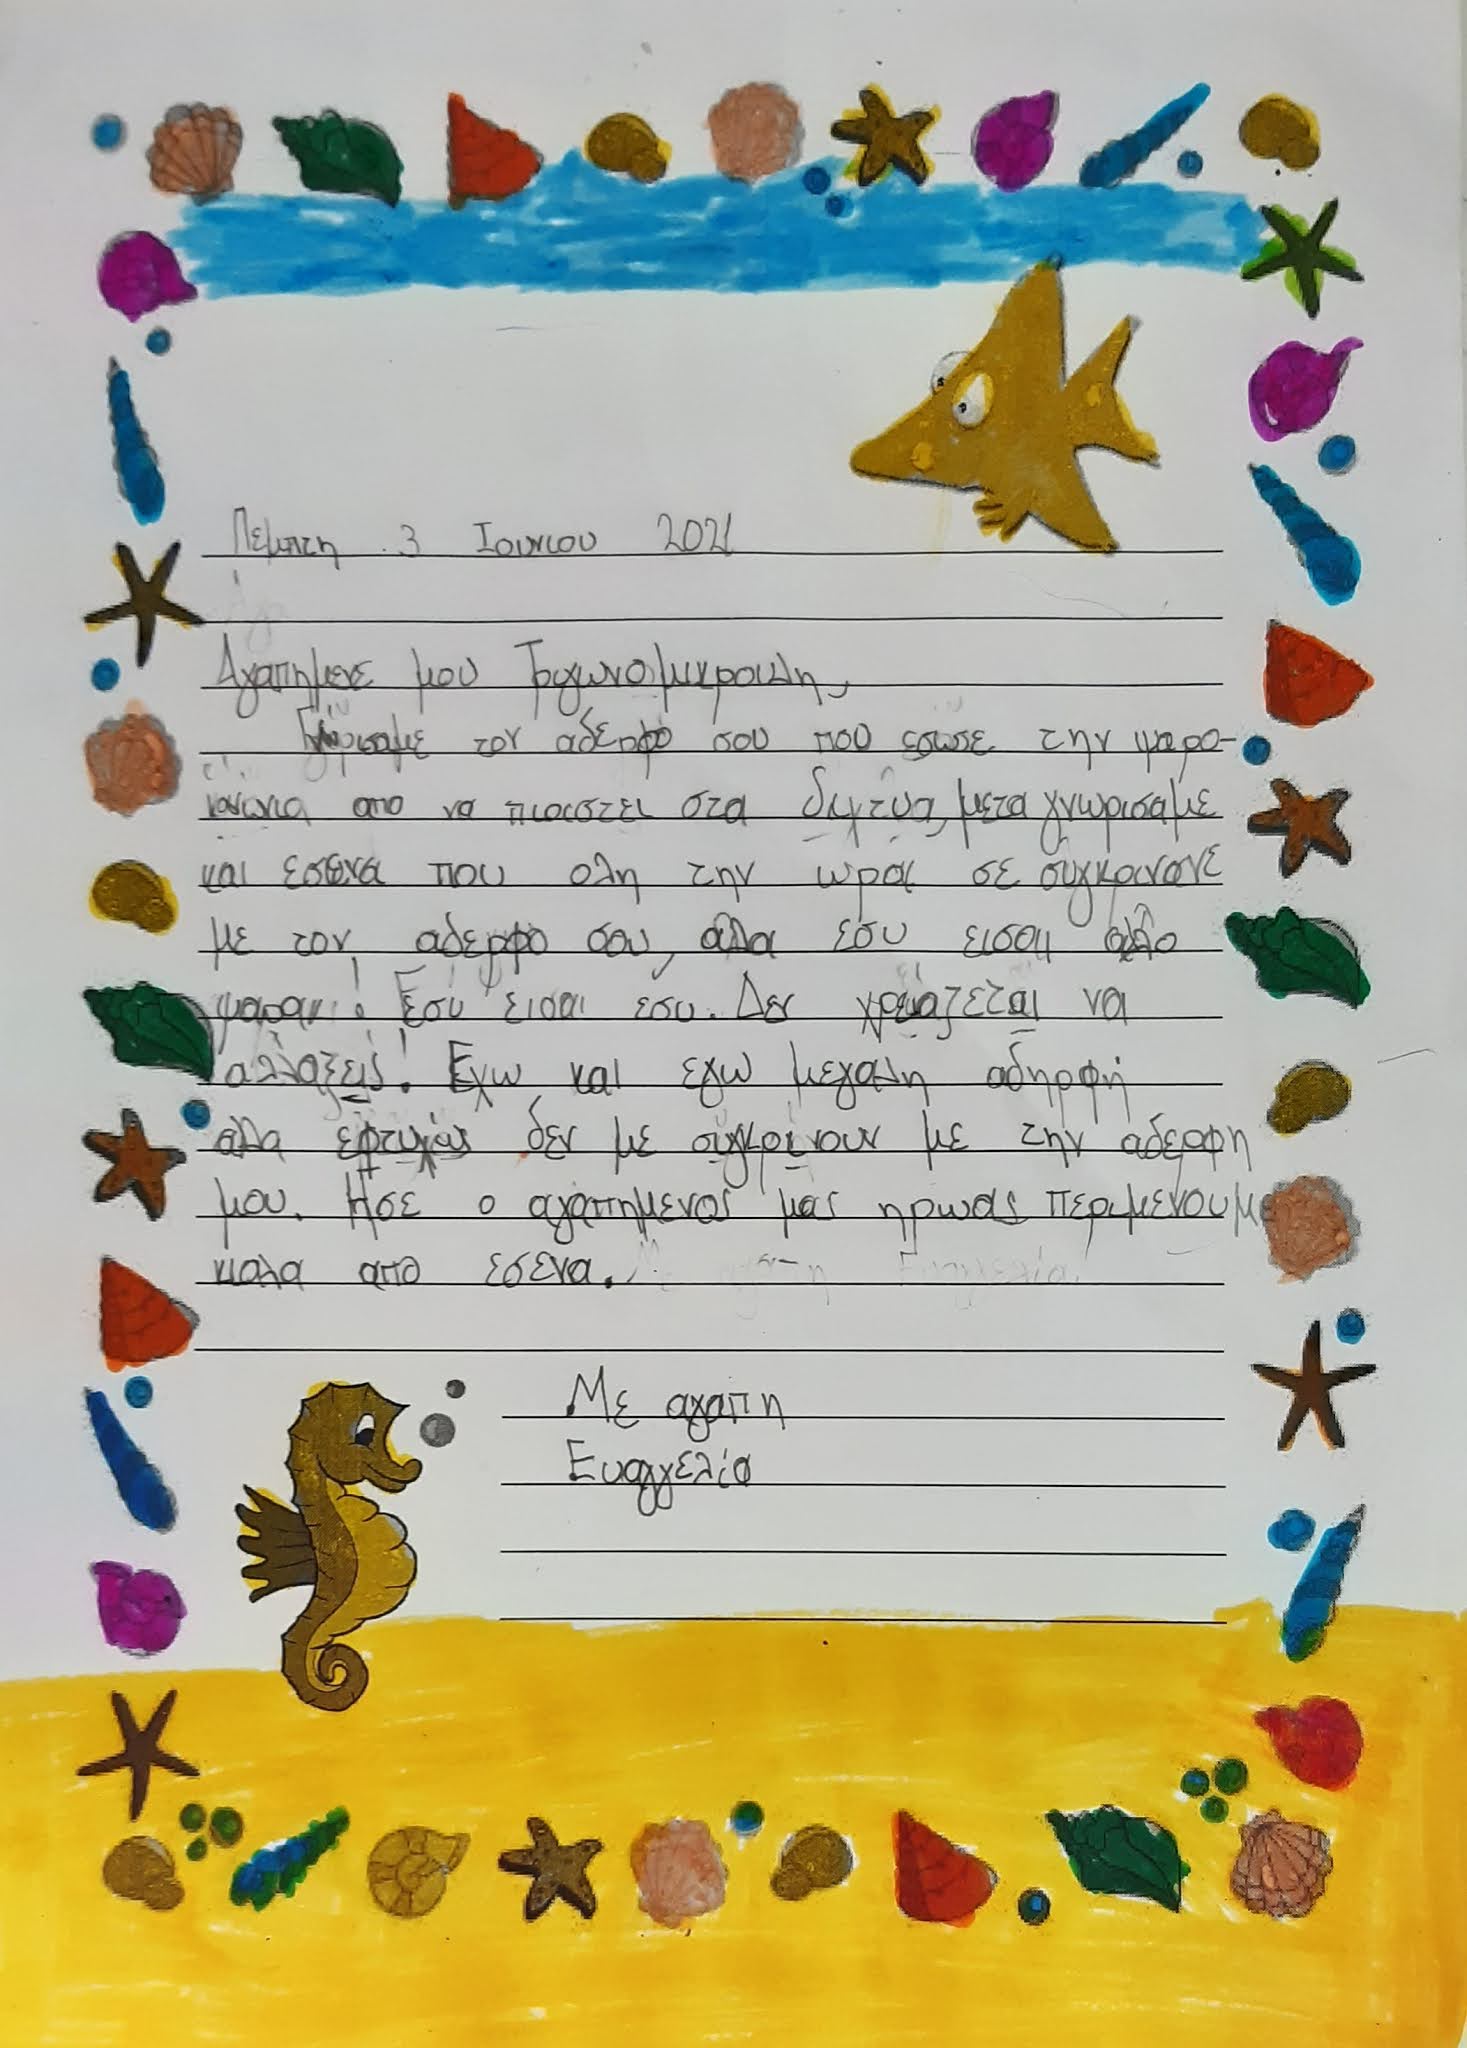 Πεμπτη 3 Ιουνιου 2021
Αγαπημενε μου Τριγωνομικρουλη,
Γνώρισαμε τον αδερφο σου που εσωσε την ψαρο-
κοινωνια απο να πιαστει στα διχτυα, μετα γνωρισαμε
και εσενα που ολη την ωρα σε συγκρινανε
με τον αδερφο σου, αλλα εσυ εισαι αλλο
ψαρακι! Εσυ εισαι εσυ. Δεν χρειαζεται να
αλλαξεις! Εχω και εγω μεγαλη αδηρφή
αλλα εφτυχως δεν με συγκρίνουν με την αδερφη
μου. Ησε ο αγαπημενος μας ηρωας περιμενουμε
καλα απο εσενα.
Με αγαπη
Ευαγγελία